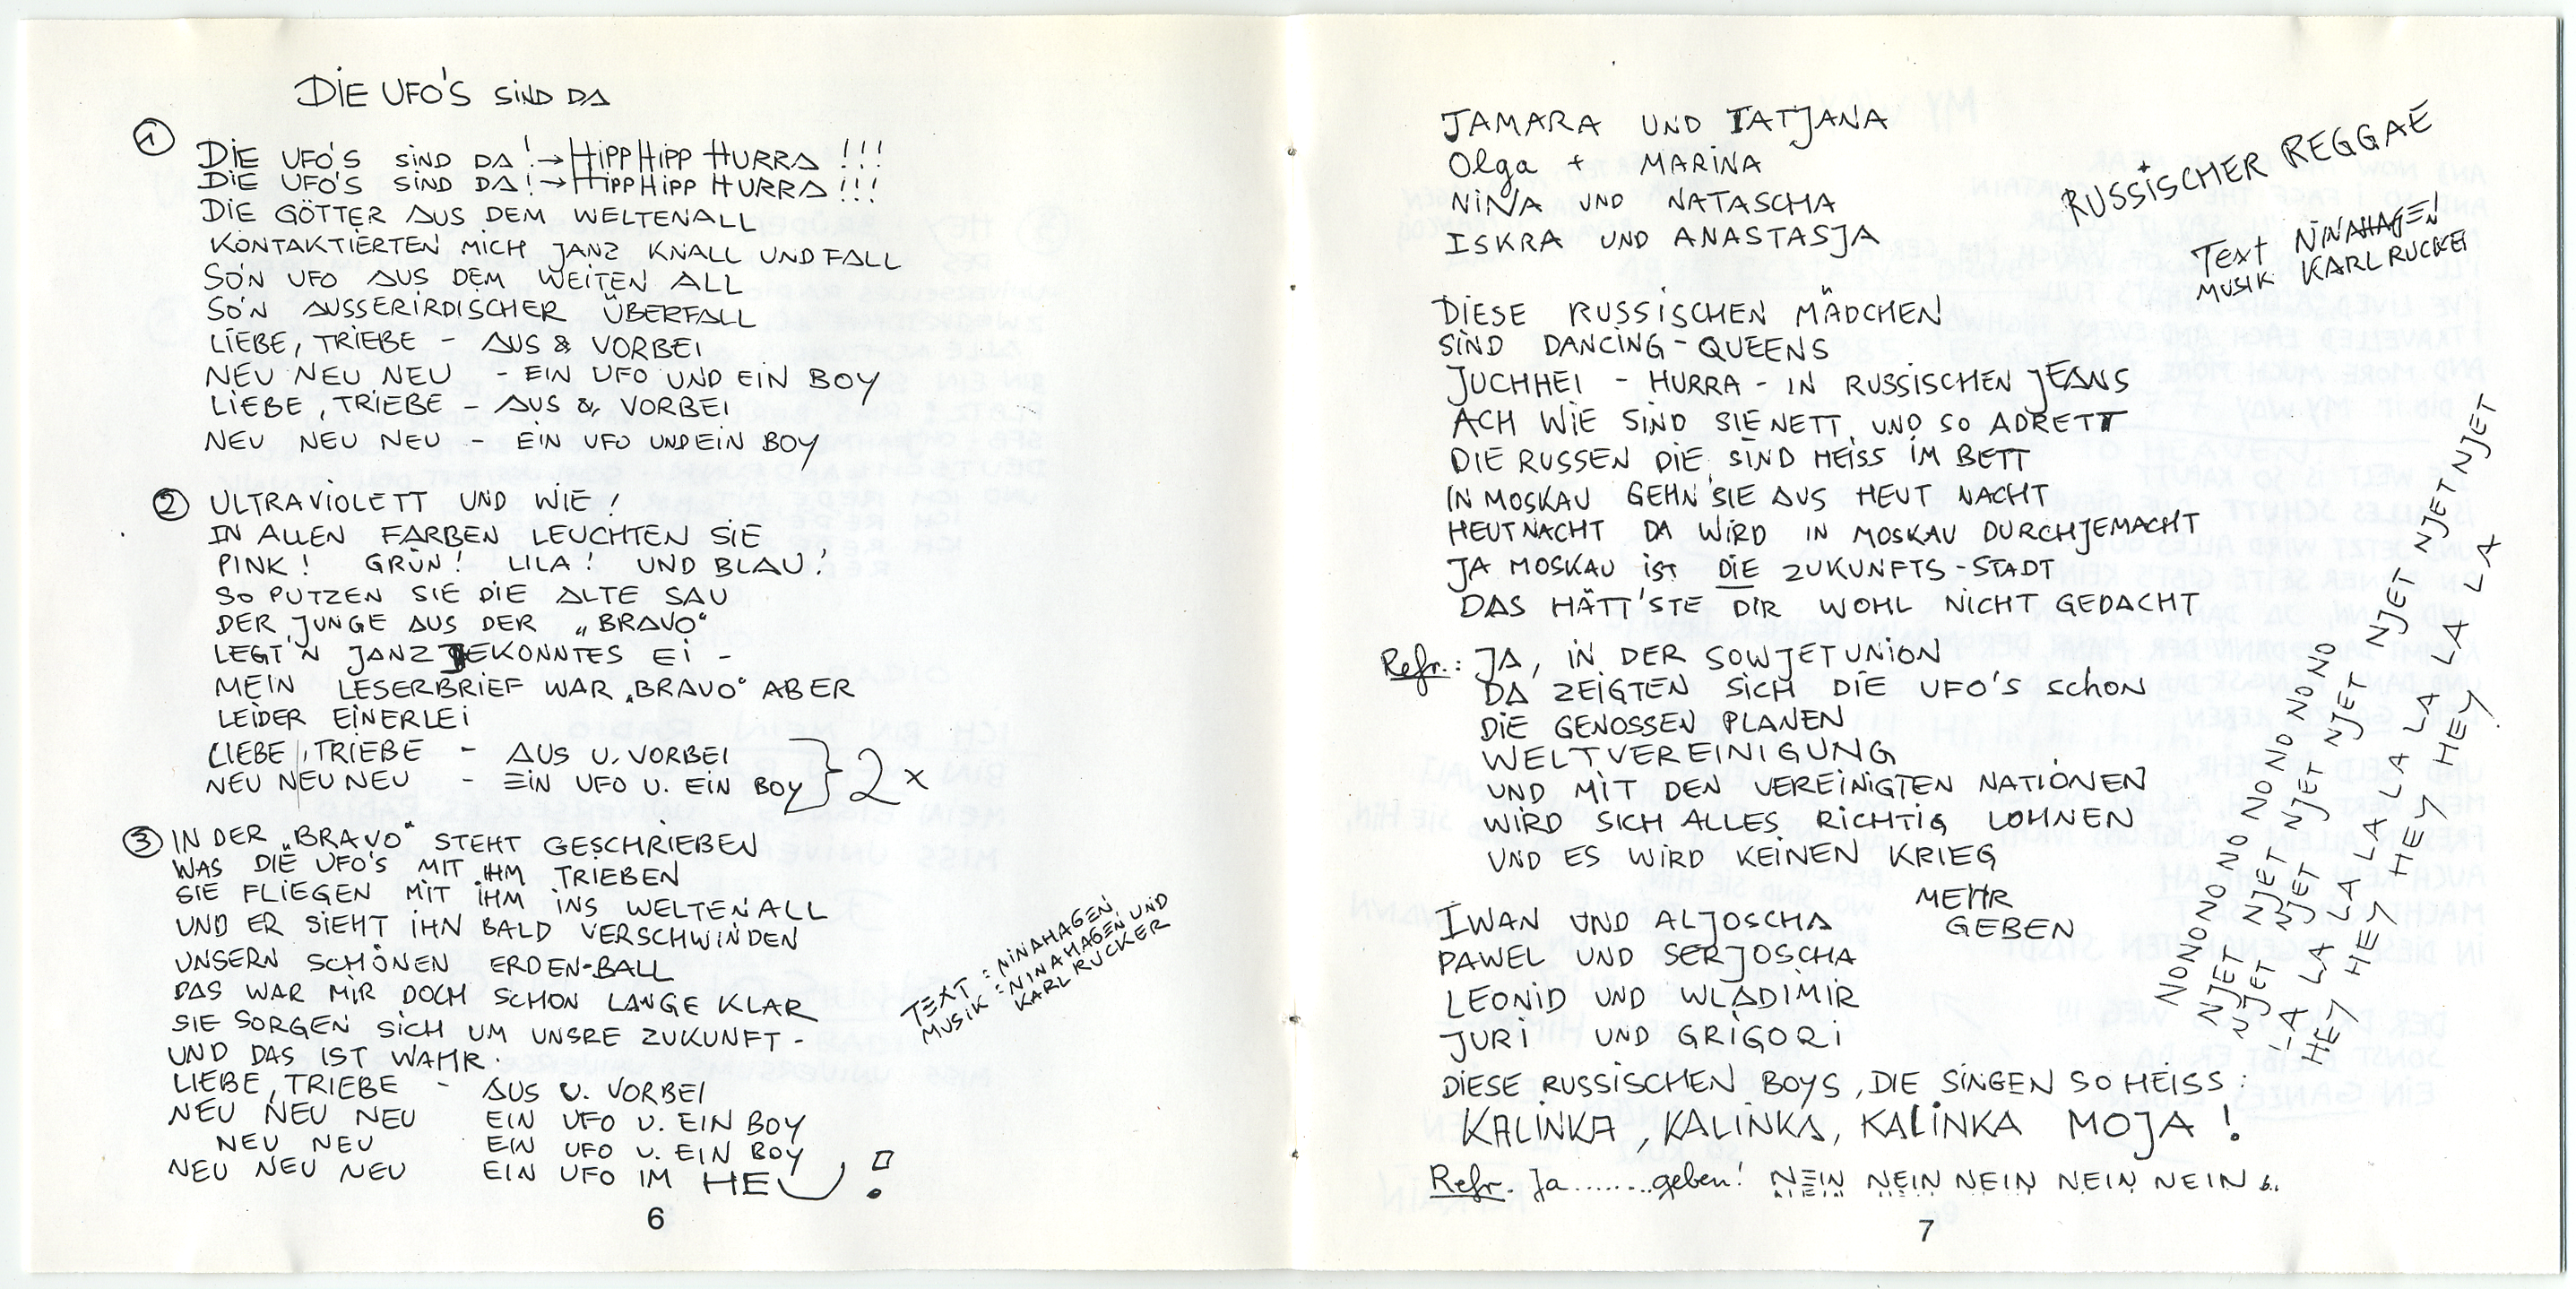 DIE UFO'S SIND DA
①
DIE UFO'S SIND DA! → HIPP HIPP HURRA!!!
DIE UFO'S SIND DA! → HIPP HIPP HURRA!!!
DIE GÖTTER AUS DEM WELTENALL
KONTAKTIERTEN MICH JANZ KNALL UND FALL
SO'N UFO AUS DEM WEITEN ALL
SO'N AUSSERIRDISCHER ÜBERFALL
LIEBE, TRIEBE - AUS & VORBEI
NEU NEU NEU - EIN UFO UND EIN BOY
LIEBE, TRIEBE - AUS & VORBEI
NEU NEU NEU - EIN UFO UND EIN BOY
② ULTRAVIOLETT UND WIE!
IN ALLEN FARBEN LEUCHTEN SIE
PINK! GRÜN! LILA! UND BLAU!
SO PUTZEN SIE DIE ALTE SAU
DER JUNGE AUS DER „BRAVO"
LEGT'N JANZ JEKONNTES EI -
MEIN LESERBRIEF WAR „BRAVO" ABER
LEIDER EINERLEI
LIEBE, TRIEBE - AUS U. VORBEI
NEU NEU NEU - EIN UFO U. EIN BOY } 2x
③ IN DER „BRAVO" STEHT GESCHRIEBEN
WAS DIE UFO'S MIT IHM TRIEBEN
SIE FLIEGEN MIT IHM INS WELTENALL
UND ER SIEHT IHN BALD VERSCHWINDEN
UNSERN SCHÖNEN ERDEN-BALL
DAS WAR MIR DOCH SCHON LANGE KLAR
SIE SORGEN SICH UM UNSRE ZUKUNFT -
UND DAS IST WAHR.
LIEBE, TRIEBE - AUS U. VORBEI
NEU NEU NEU EIN UFO U. EIN BOY
NEU NEU EIN UFO U. EIN BOY
NEU NEU NEU EIN UFO IM HEU!
TEXT: NINA HAGEN
MUSIK: NINA HAGEN UND
KARL RUCKER
6
RUSSISCHER REGGAE
TEXT NINA HAGEN
MUSIK KARL RUCKER
TAMARA UND TATJANA
Olga + MARINA
NINA UND NATASCHA
ISKRA UND ANASTASJA
DIESE RUSSISCHEN MÄDCHEN
SIND DANCING-QUEENS
JUCHHEI - HURRA - IN RUSSISCHEN JEANS
ACH WIE SIND SIE NETT UND SO ADRETT
DIE RUSSEN DIE SIND HEISS IM BETT
IN MOSKAU GEHN SIE AUS HEUT NACHT
HEUT NACHT DA WIRD IN MOSKAU DURCHJEMACHT
JA MOSKAU IST DIE ZUKUNFTS-STADT
DAS HÄTT'STE DIR WOHL NICHT GEDACHT
Refr.: JA, IN DER SOWJETUNION
DA ZEIGTEN SICH DIE UFO'S SCHON
DIE GENOSSEN PLANEN
WELTVEREINIGUNG
UND MIT DEN VEREINIGTEN NATIONEN
WIRD SICH ALLES RICHTIG LOHNEN
UND ES WIRD KEINEN KRIEG
MEHR
GEBEN
IWAN UND ALJOSCHA
PAWEL UND SERJOSCHA
LEONID UND WLADIMIR
JURI UND GRIGORI
DIESE RUSSISCHEN BOYS, DIE SINGEN SO HEISS:
KALINKA, KALINKA, KALINKA MOJA!
Refr. Ja........geben! NEIN NEIN NEIN NEIN NEIN
NONONO NO NO NO NO NO NO
NJET NJET NJET NJET NJET NJET NJET NJET
NJET NJET NJET NJET
LA LA LA LA LA LA LA LA LA
HEY HEY HEY HEY HEY
7